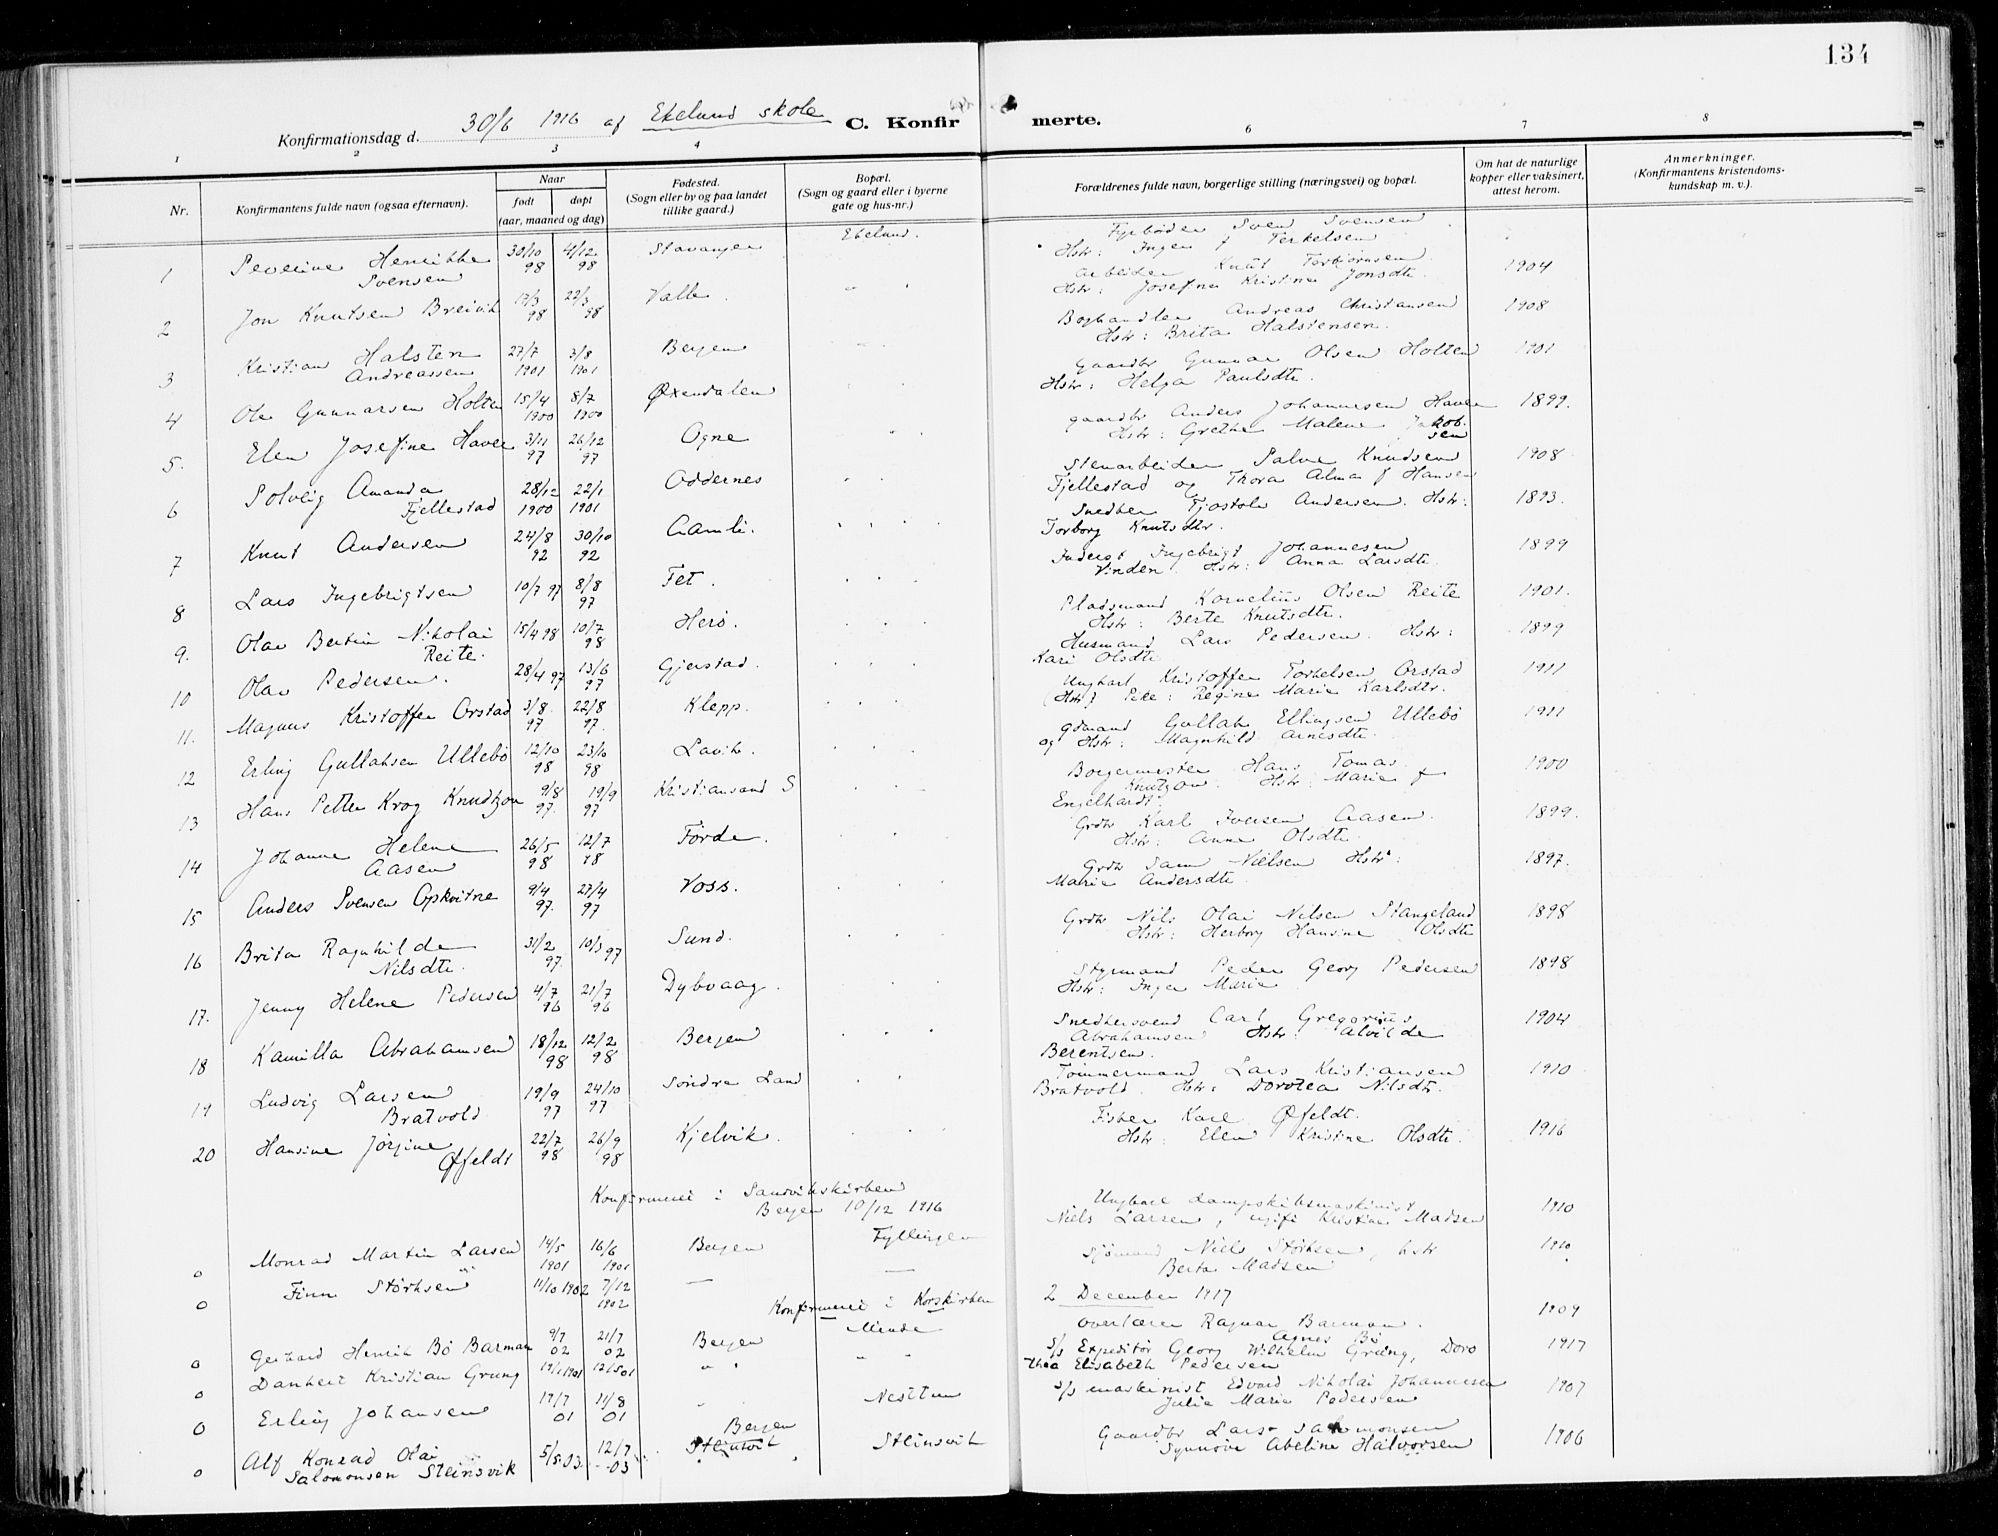 134
Konfirmationsdag d. 30/6 1916 af Ekelund skole C. Konfirmerte.
1 2 3 4 6 7 8
Nr. Konfirmantens fulde navn (ogsaa efternavn). Naar født døpt (aar, maaned og dag) Fødested. (Sogn eller by og paa landet tillike gaard.) Bopæl. (Sogn og gaard eller i byerne gate og hus-nr.) Forældrenes fulde navn, borgerlige stilling (næringsvei) og bopæl. Om hat de naturlige kopper eller vaksinert, attest herom. Anmerkninger. (Konfirmantens kristendomskundskap m. v.).
1 Severine Henrikke Svensen 30/10 98 4/12 98 Stavanger Ekelund. Fyrbøder Sven Svensen Hstr: Inger f Terkelsen 1904
2 Jon Knutsen Breivik 17/3 98 22/3 98 Valle. Arbeider Knut Torbjørnsen Hstr: Josefine Kristine Jonsdtr. 1908
3 Kristian Halsten Andreassen 27/7 1901 3/8 1901 Bergen Boghandler Andreas Christansen Hstr: Brita Halstensen. 1901
4 Ole Gunnarsen Holten 15/4 1900 8/7 1900 Øxendalen Gaardbr Gunnar Olsen Holten Hstr: Helga Paulsdtr.
5. Elen Josefine Haver 3/11 97 26/12 97 Ogne gaardbr Anders Johannesen Haver Hstr: Grethe Malene Jakobsen 1899.
6 Solveig Amanda Fjellestad 28/12 1900 22/1 1901 Oddernes Stenarbeider Salve Knudsen Fjellestad og Thora Alma f Hansen 1908
7 Knut Andersen 24/8 92 30/10 92 Aamli. Snedker Fjostolv Andersen. Hstr: Torborg Knutsdtr. 1893.
8 Lars Ingebrigtsen 10/7 97 8/8 97 Fet. Inderst Ingebrigt Johannesen Vinden. Hstr: Anna Larsdtr. 1899
9. Olav Bertin Nikolai Reite. 15/4 98 10/7 98 Herø. Pladsmand Kornelius Olsen Reite Hstr: Berte Knutsdtr. 1901.
10 Olav Pedersen. 28/4 97 13/6 97 Gjerstad. Husmand Lars Pedersen. Hstr: Kari Olsdtr 1899
11. Magnus Kristoffer Orstad 3/8 97 22/8 97. Klepp. Ungkarl Kristoffer Torkelsen Orstad (Hstr) Pike: Regine Marie Karlsdtr. 1911
12 Erling Gullaksen Ullebø 12/10 98 23/10 98 Lavik. gdmand Gullak Ellingsen Ullebø og Hstr: Magnhild Arnesdtr. 1911
13 Hans Petter Krog Knudtzon 9/8 97. 19/9 97 Kristiansand S Borgermester Hans Tomas Knutzon. Hstr: Marie f Engelhardt. 1900
14 Johanne Helene Aasen 26/5 98 12/7 98 Førde. Grdbr Karl Iversen Aasen. Hstr: Anne Olsdtr. 1899.
15 Anders Svensen Opkvitne 9/4 97. 27/4 97 Voss. Grdbr Sam Nielsen Hstr: Marie Andersdtr. 1897.
16 Brita Ragnhilde Nilsdtr. 31/2 97. 10/3 97 Sund. Grdbr Nils Olai Nilsen Stangeland Hstr: Herborg Hansine Olsdtr 1898
17. Jenny Helene Pedersen 4/7 96 21/7 96 Dybvaag. Styrmand Peder Georg Pedersen Hstr: Inger Marie 1898
18 Kamilla Abrahamsen 18/12 98 12/2 98 Bergen Snedkersvend Carl Gregorius Abrahamsen Hstr: Alvilde Berentsen. 1904
19 Ludvig Larsen Bratvold 19/9 97 24/10 97 Søndre Land Tømmermand Lars Kristiansen Bratvold. Hstr: Dorotea Nilsdtr. 1910
20 Hansine Jørgine Øfeldt 22/7 98 26/9 98 Kjelvik. Fisker Karl Øfeldt. Hstr: Elen Kristine Olsdtr. 1916
Konfirmert i Sandvikskirken Bergen 10/12 1916
o Monrad Martin Larsen 14/5 1901 16/6 1901 Bergen Fyllingen Ungkarl dampskibsmaskinist Niels Larsen, ugift Kristine Madsen 1910
o Finn Størksen 11/10 1902 7/12 1902 — — Sjømand Niels Størksen, hstr Berta Madsen 1910
Konfirmert i Korskirken 2 December 1917
o Gerhard Henrik Bø Barman 9/7 02 21/7 02 Bergen Minde Overlærer Ragnar Barman. Agnes Bø 1909
o Danhert Kristian Grung 19/1 1901 12/5 01 " " S/s Expeditør Georg Wilhelm Grung, Dorothea Elisabeth Pedersen 1917
o Erling Johansen 17/7 01 11/8 01 " Nesttun S/s maskinist Edvard Nikolai Johannesen Julie Marie Pedersen 1907
o Alf Konrad Olai Salomonsen Steinsvik 5/5 03. 12/7 03 Bergen Steinsvik Steinsvik Gaardbr Lars Salomonsen Synnøve Abeline Halvorsen 1906